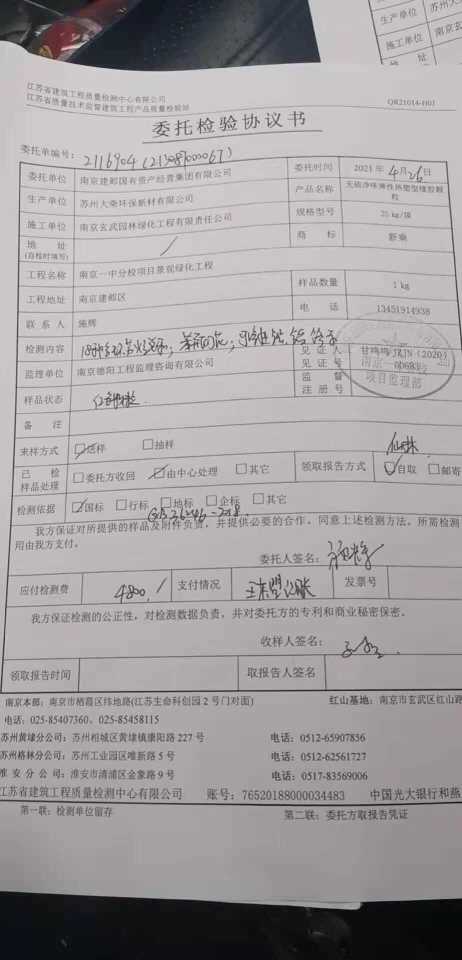 江苏省建筑工程质量检测中心有限公司
江苏省质量技术监督建筑工程产品质量检验站
QR21014-H01
委托检验协议书
委托单编号：2116904 (21308900067)
委托单位 南京建邺国有资产经营集团有限公司 委托时间 2021年4月26日
生产单位 苏州大乘环保新材有限公司 产品名称 无硫净味弹性热塑型橡胶颗粒
施工单位 南京玄武园林绿化工程有限责任公司 规格型号 25 kg/袋
地 址 (自检时填写) / 商 标 新乘
工程名称 南京一中分校项目景观绿化工程 样品数量 1 kg
工程地址 南京建邺区 电 话 13451914938
联 系 人 施辉
检测内容
见 证 人 甘鸣鸣 JZJN (2020)
监理单位 南京德阳工程监理咨询有限公司 见 证 号
监 督 注 册 号
项目监理部
样品状态 红颗粒
备 注
来样方式 送样 抽样
已 检 样品处理 委托方收回 由中心处理 其它 领取报告方式 仙林 自取 邮寄
检测依据 国标 行标 地标 企标 其它
GB 36246-2018
我方保证对所提供的样品及附件负责，并提供必要的合作。同意上述检测方法。所需检测
用由我方支付。
委托人签名：
应付检测费 4800./ 支付情况 发票号
我方保证检测的公正性，对检测数据负责，并对委托方的专利和商业秘密保密。
收样人签名：
领取报告时间 取报告人签名
南京本部：南京市栖霞区纬地路(江苏生命科创园2号门对面) 红山基地：南京市玄武区红山路
电话：025-85407360、025-85458115
苏州黄埭分公司：苏州相城区黄埭镇康阳路 227 号 电话：0512-65907836
苏州格林分公司：苏州工业园区唯新路 5 号 电话：0512-62561727
淮 安 分 公 司：淮安市清浦区金象路 9 号 电话：0517-83569006
江苏省建筑工程质量检测中心有限公司 账号：76520188000034483 中国光大银行和燕
第一联：检测单位留存 第二联：委托方取报告凭证
生产单位 苏州大
施工单位 南京玄
地 址